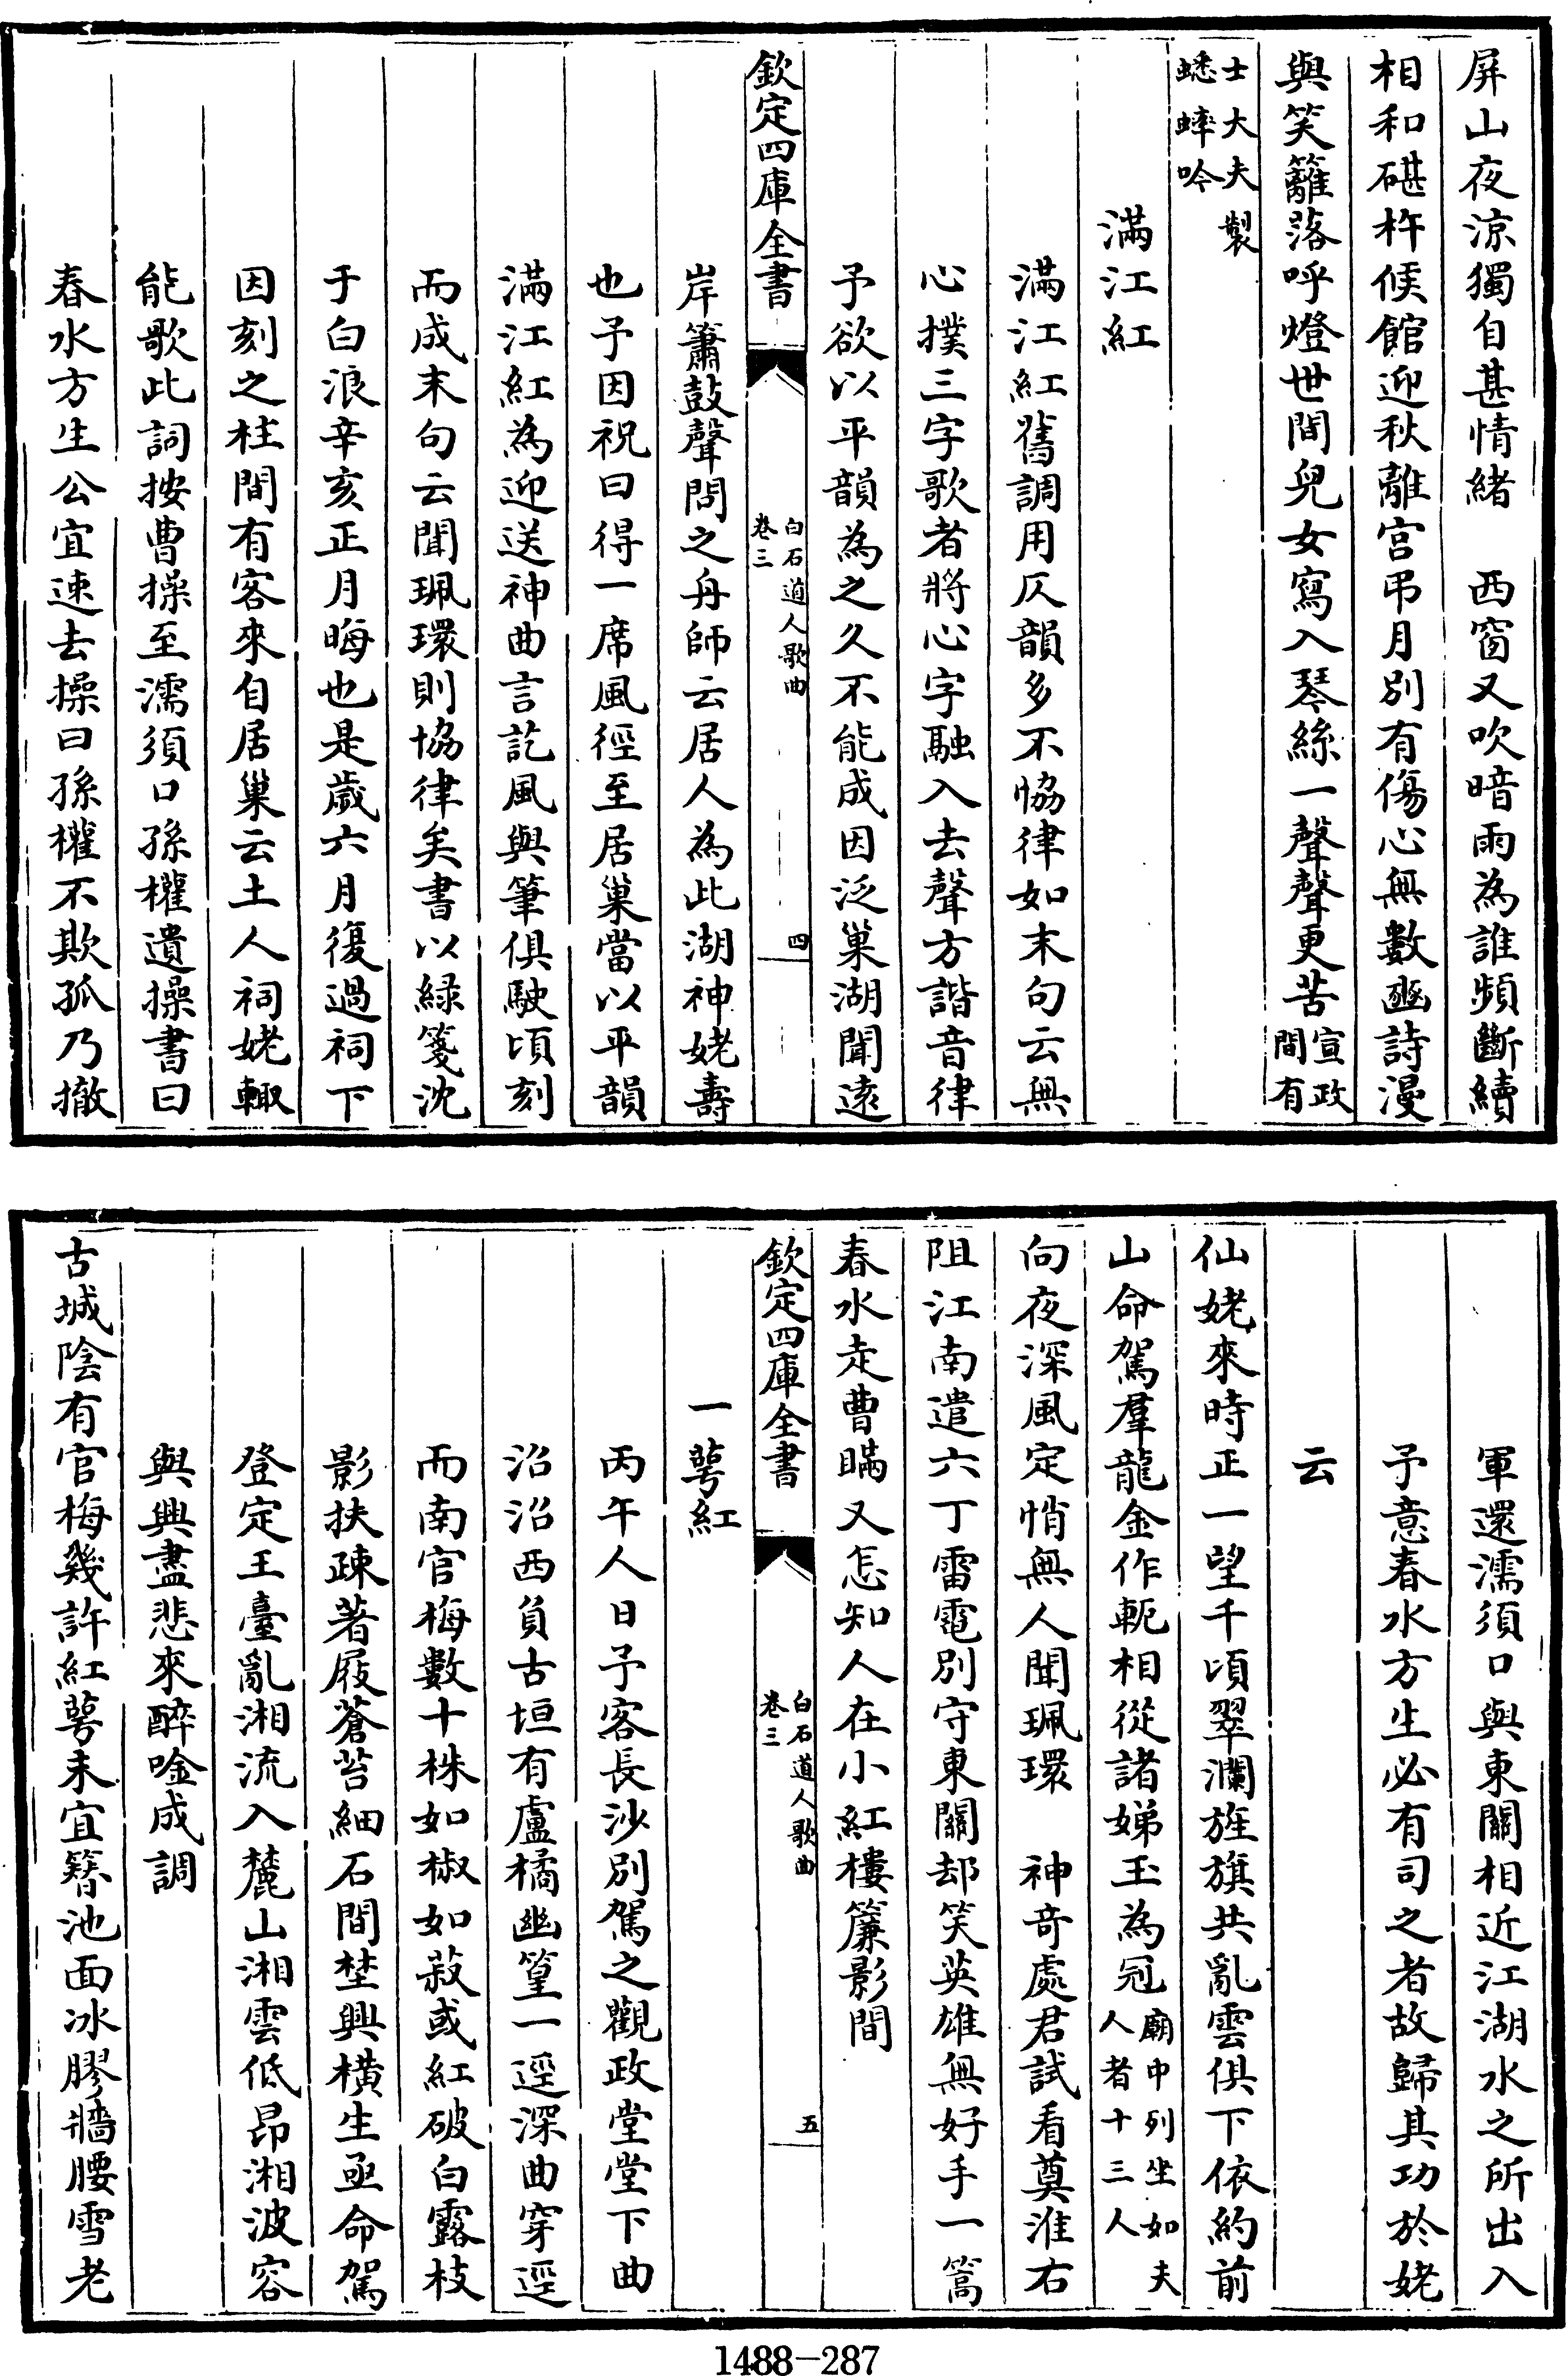 屏山夜涼獨自甚情緒　西窗又吹暗雨為誰頻斷續
相和碪杵候館迎秋離宮弔月別有傷心無數豳詩漫
與笑籬落呼燈世間兒女寫入琴絲一聲聲更苦宣政間有
士大夫製蟋蟀吟
滿江紅
滿江紅舊調用仄韻多不恊律如末句云無
心撲三字歌者將心字融入去聲方諧音律
予欲以平韻為之久不能成因泛巢湖聞遠
欽定四庫全書
白石道人歌曲
卷三
四
岸簫鼓聲問之舟師云居人為此湖神姥壽
也予因祝曰得一席風徑至居巢當以平韻
滿江紅為迎送神曲言訖風與筆俱駛頃刻
而成末句云聞珮環則協律矣書以緑箋沈
于白浪辛亥正月晦也是歲六月復過祠下
因刻之柱間有客來自居巢云土人祠姥輙
能歌此詞按曹操至濡須口孫權遺操書曰
春水方生公宜速去操曰孫權不欺孤乃撤
軍還濡須口與東關相近江湖水之所出入
予意春水方生必有司之者故歸其功於姥
云
仙姥來時正一望千頃翠瀾旌旗共亂雲俱下依約前
山命駕羣龍金作軛相從諸娣玉為冠廟中列坐如夫人者十三人
向夜深風定悄無人聞珮環　神奇處君試看奠淮右
阻江南遣六丁雷電別守東關却笑英雄無好手一篙
春水走曹瞞又怎知人在小紅樓簾影間
欽定四庫全書
白石道人歌曲
卷三
五
一萼紅
丙午人日予客長沙別駕之觀政堂堂下曲
沼沼西負古垣有盧橘幽篁一逕深曲穿逕
而南官梅數十株如椒如菽或紅破白露枝
影扶疎著屐蒼苔細石間埜興橫生亟命駕
登定王臺亂湘流入麓山湘雲低昂湘波容
與興盡悲來醉唫成調
古城陰有官梅幾許紅萼未宜簪池面冰膠牆腰雪老
1488-287